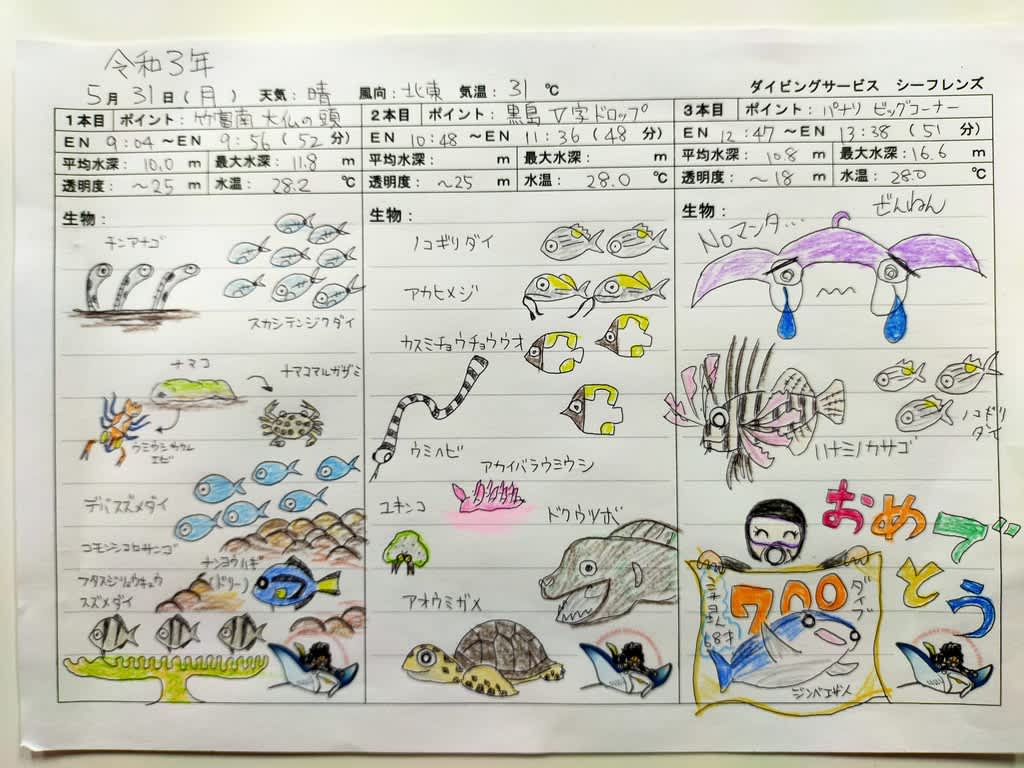 令和3年
5月 31日(月) 天気:晴 風向:北東 気温:31 ℃ ダイビングサービス シーフレンズ
1本目 ポイント:竹富南 大仏の頭
EN 9:04 ~EN 9:56 (52 分)
平均水深: 10.0 m 最大水深: 11.8 m
透明度: ~25 m 水温: 28.2 ℃
生物:
チンアナゴ
スカシテンジクダイ
ナマコ
ナマコマルガザミ
ウミウシカクレ
エビ
デバスズメダイ
コモンシコロサンゴ
ナンヨウハギ
(ドリー)
フタスジリュウキュウ
スズメダイ
2本目 ポイント:黒島 V字ドロップ
EN 10:48 ~EN 11:36 (48 分)
平均水深: m 最大水深: m
透明度: ~25 m 水温: 28.0 ℃
生物:
ノコギリダイ
アカヒメジ
カスミチョウチョウウオ
ウミヘビ
アカイバラウミウシ
ユキンコ
ドクウツボ
アオウミガメ
3本目 ポイント: パナリ ビッグコーナー
EN 12:47 ~EN 13:38 (51 分)
平均水深: 10.8 m 最大水深: 16.6 m
透明度: ~18 m 水温: 28.0 ℃
生物:
ぜんねん
Noマンタ...
ノコギリ
ダイ
ハナミノカサゴ
おめで
とう
700
ダイブ
ジンベエザメ